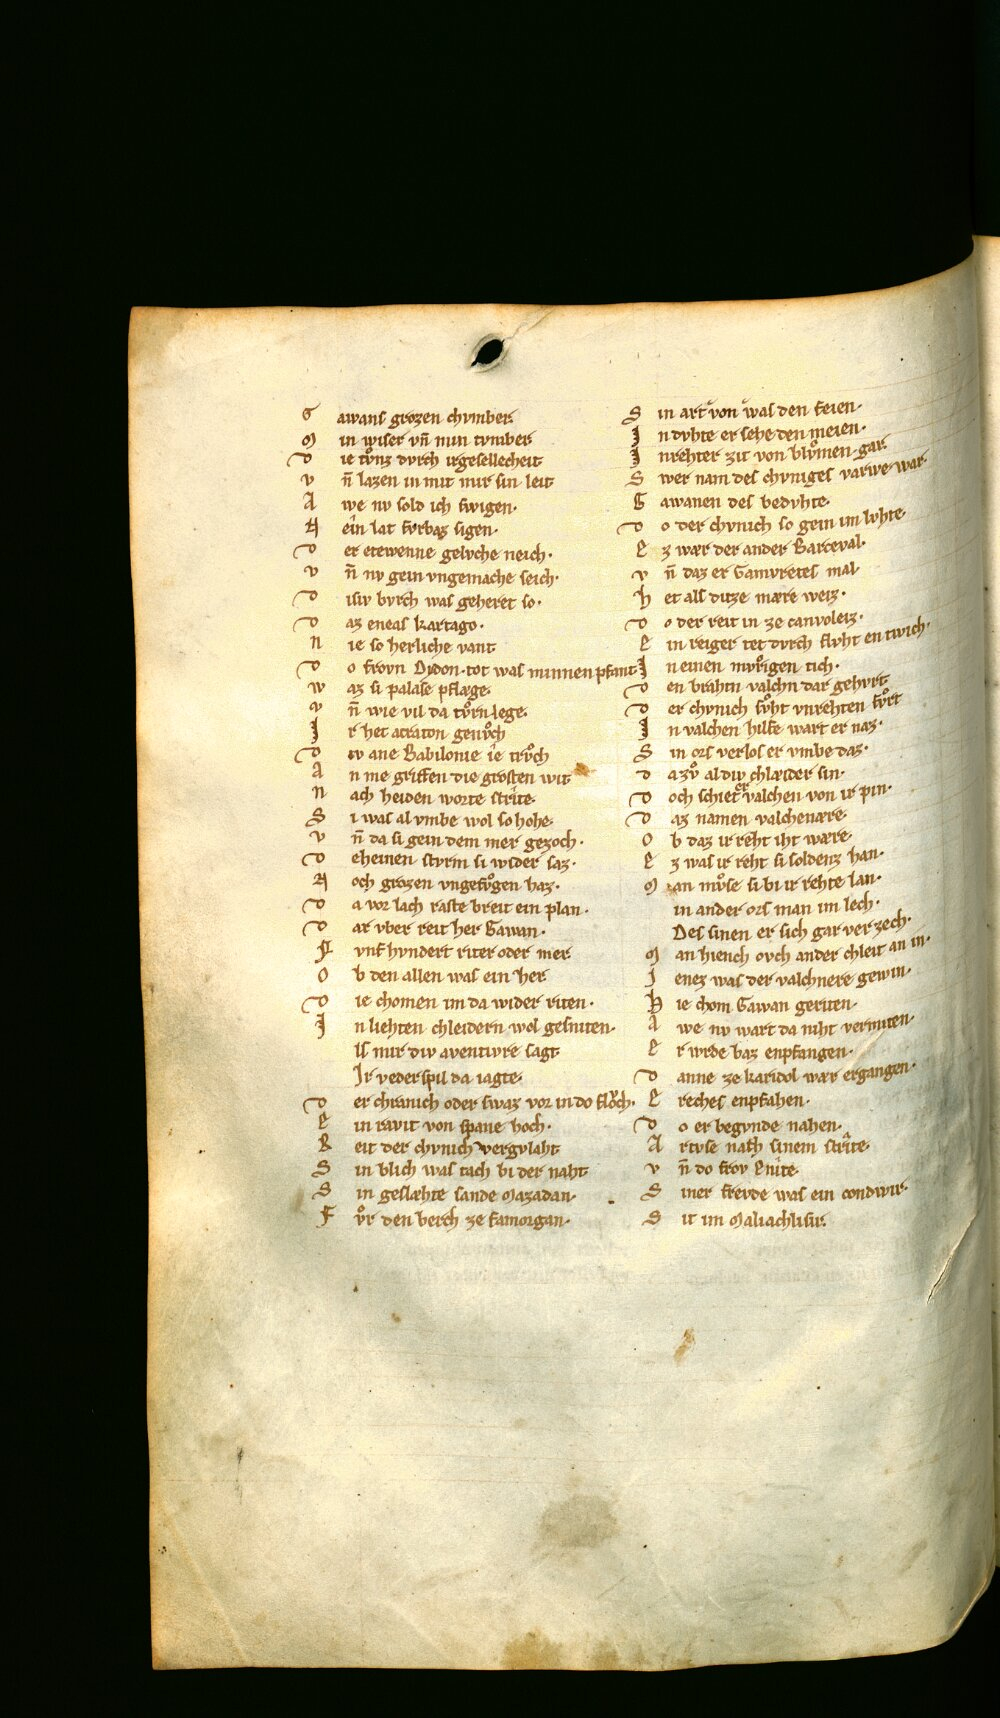 G awans grozen chvmber.
M in wiser vn̄ min tvmber
D ie tvͦnz dvrch irgesellecheit
v n̄ lazen in mit mir sin leit
A we nv sold ich swigen.
N ein lat fvrbaz sigen.
D er etewenne gelvche neich.
v n̄ nv gein vngemache seich.
D isiv bvrch was geheret so.
D az eneas kartago.
N ie so herliche vant
D o frovn Dydon. tot was minnen pfant
W az si palase pflæge.
v n̄ wie vil da tvͦrn lege.
I r het acraton genvͦch
D iv ane Babilonie ie trvͦch
A n me griffen die grosten wit
N ach heiden worte strite.
S i was al vmbe wol so hohe.
v n̄ da si gein dem mer gezoch.
D eheinen stvrm si wider saz.
N och grozen vngefvͦgen haz.
D a vor lach raste breit ein plan.
D ar vber reit her Gawan.
F vnf hvndert riter oder mer
O b den allen was ein her
D ie chomen im da wider riten.
I n liehten chleidern wol gesniten.
Als mir div aventivre sagt
Ir vederspil da iagte.
D er chranich oder swaz vor in do flovͦch.
E in ravit von spane hoch.
R eit der chvnich vergvlaht
S in blich was tach bi der naht
S in geslæhte sande Mazadan.
F vͦr den berch ze famorgan.
S in art von was den feien.
I n dvhte er sehe den meien.
I n rehter zit von blvͦmen gar.
S wer nam des chvniges varwe war.
G awanen des bedvhte.
D o der chvnich so gein im lvhte.
E z wær der ander Barceval.
v n̄ daz er Gamvretes mal
H et als ditze mære weiz.
D o der reit in ze canvoleiz.
E in reiger tet dvrch flvht entwich.
I n einen mvͦrigen tich.
D en brahtn valchn dar gehvrt
D er chvnich svͦht vnrehten fvͦrt
I n valchen hilfe wart er naz.
S in ors verlos er vmbe daz.
D a zvͦ al div chlæider sin.
D och schiet er valchen von ir pin.
D az namen valchenære.
O b daz ir reht iht wære.
E z was ir reht si soldenz han.
M an mvͦse si bi ir rehte lan.
in ander ors man im lech.
Des sinen er sich gar verzech.
M an hiench ovch ander chleit an in.
I enez was der valchnere gewin.
H ie chom Gawan geriten.
A we nv wart da niht vermiten.
E r wrde baz enpfangen.
D anne ze karidol wær ergangen.
E reches enpfahen.
D o er begvnde nahen.
A rtvse nach sinem strite.
v n̄ do frov Enite.
S iner frevde was ein condwir.
S it im Maliachlisir.